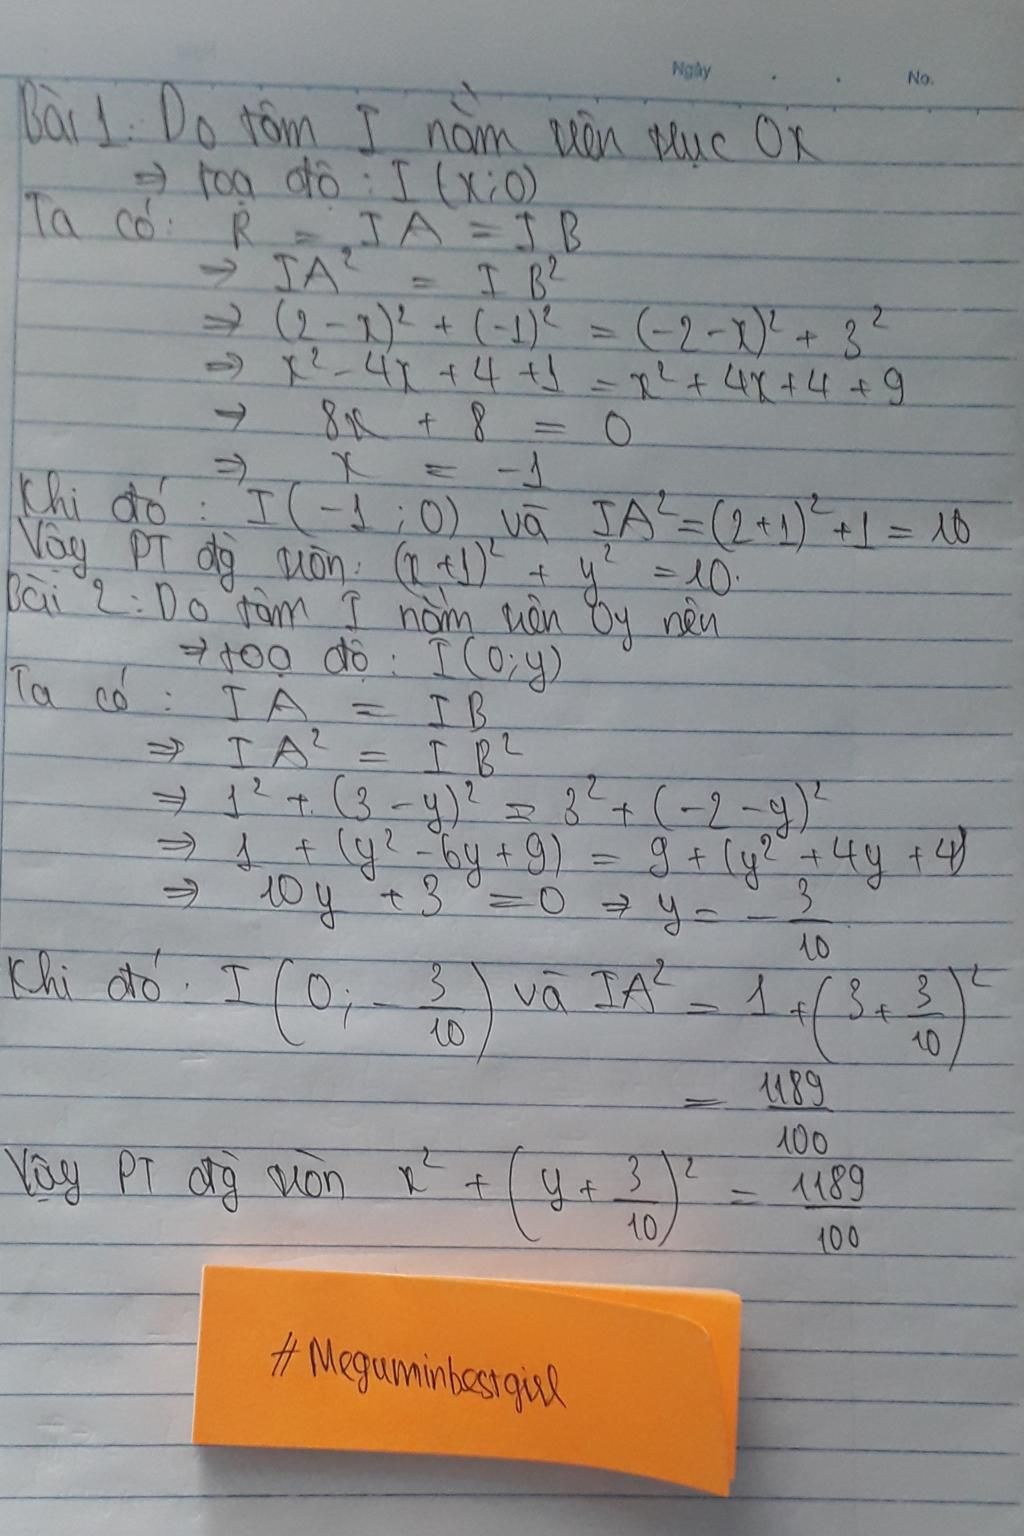 Ngày . . No.
Bài 1: Do tâm I nằm trên trục Ox
⇒ toạ độ : I (x;0)
Ta có: R = IA = IB
⇒ IA² = IB²
⇒ (2-x)² + (-1)² = (-2-x)² + 3²
⇒ x² - 4x + 4 + 1 = x² + 4x + 4 + 9
⇒ 8x + 8 = 0
⇒ x = -1
Khi đó : I(-1;0) và IA² = (2+1)² + 1 = 10
Vậy PT đg tròn: (x+1)² + y² = 10.
Bài 2: Do tâm I nằm trên Oy nên
⇒ toạ độ : I(0;y)
Ta có : IA = IB
⇒ IA² = IB²
⇒ 1² + (3-y)² = 3² + (-2-y)²
⇒ 1 + (y² - 6y + 9) = 9 + (y² + 4y + 4)
⇒ 10y + 3 = 0 ⇒ y = -3/10
Khi đó. I (0; -3/10) và IA² = 1 + (3 + 3/10)²
= 1189/100
Vậy PT đg tròn x² + (y + 3/10)² = 1189/100
#Meguminbestgirl